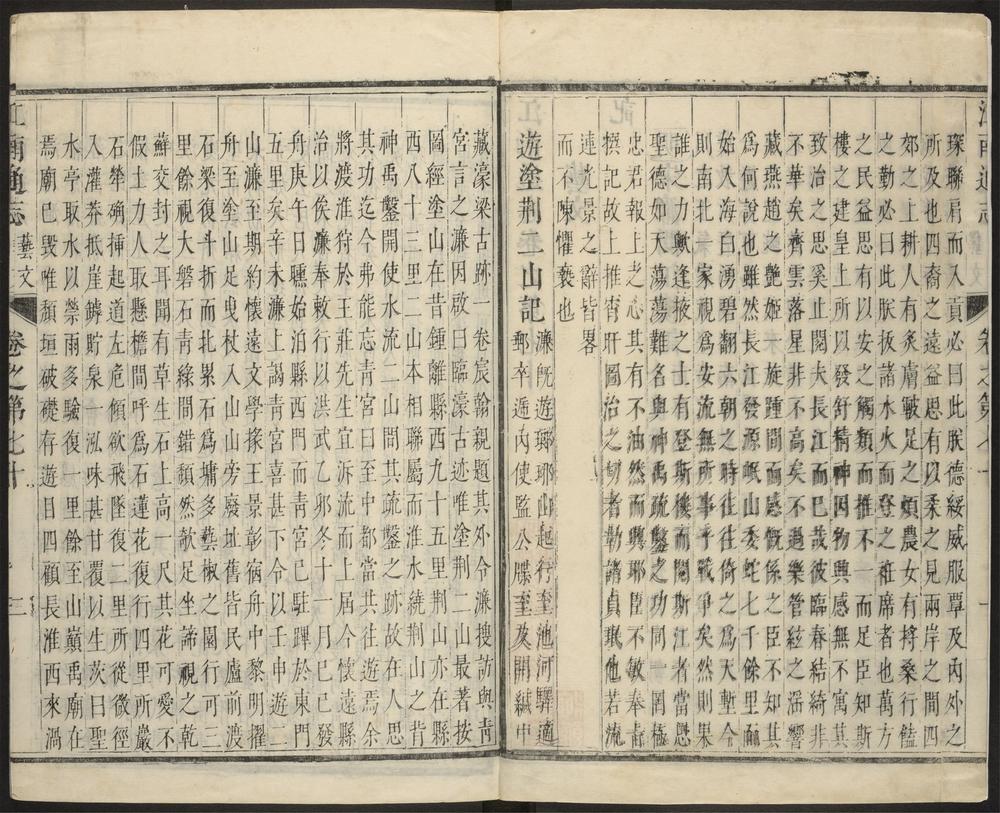 琛聯肩而入貢必曰此朕德綏威服覃及內外之
所及也四裔之遠益思有以柔之見兩岸之間四
郊之上耕人有炙膚皸足之煩農女有捋桑行饁
之勤必曰此朕拔諸水火而登之衽席者也萬方
之民益思有以安之觸類而推不一而足臣知斯
樓之建皇上所以發舒精神因物興感無不寓其
致治之思奚止閱夫長江而已哉彼臨春結綺非
不華矣齊雲落星非不高矣不過樂管絃之淫響
藏燕趙之艷姬一旋踵間而感慨係之臣不知其
爲何說也雖然長江發源岷山委蛇七千餘里而
始入海白湧碧翻六朝之時往往倚之爲天塹今
則南北一家視爲安流無所事乎戰爭矣然則果
誰之力歟逢掖之士有登斯樓而閱斯江者當思
聖德如天蕩蕩難名與神禹疏鑿之功同一罔極
忠君報上之心其有不油然而興耶臣不敏奉旨
撰記故上推宵旰圖治之切者勒諸貞珉他若流
連光景之辭皆畧
而不陳懼褻也
遊塗荆二山記
濂旣遊瑯琊山起行至池河驛適
郵卒遞內使監公牒至及開緘中
藏濠梁古跡一卷宸翰親題其外令濂搜訪與青
宮言之濂因啟曰臨濠古迹唯塗荆二山最著按
圖經塗山在昔鍾離縣西九十五里荆山亦在縣
西八十三里二山本相聯屬而淮水繞荆山之背
神禹鑿開使水流二山間其疏鑿之跡故在人思
其功迄今弗能忘青宮曰至中都當共往遊焉余
將渡淮狩於王莊先生宜泝流而上屆今懷遠縣
治以俟濂奉敕行始以洪武乙卯冬十一月己巳發
舟庚午日曛始泊縣西門而青宮已駐蹕於東門
五里矣辛未濂上謁青宮喜甚下令以壬申遊二
山濂至期約懷遠文學掾王景彰宿舟中黎明擢
舟至塗山足曳杖入山山旁廢址舊皆民廬前渡
石梁復斗折而北累石爲墉多藝椒之園行可三
里餘視大磐石青綠間錯頽然欹足坐諦視之乾
蘚交封之耳聞有草生石上高一尺其花可愛不
假土力人取懸檐間呼爲石蓮花復行四里所巖
石犖确挿起道左危傾欲飛墜復二里所從微徑
入灌莽抵崖罅貯泉一泓味甚甘覆以生茨曰聖
水亭取水以禜雨多驗復一里餘至山巔禹廟在
焉廟已毀唯頽垣破礎存遊目四顧長淮西來渦
江南通志
藝文
卷之第七十
三